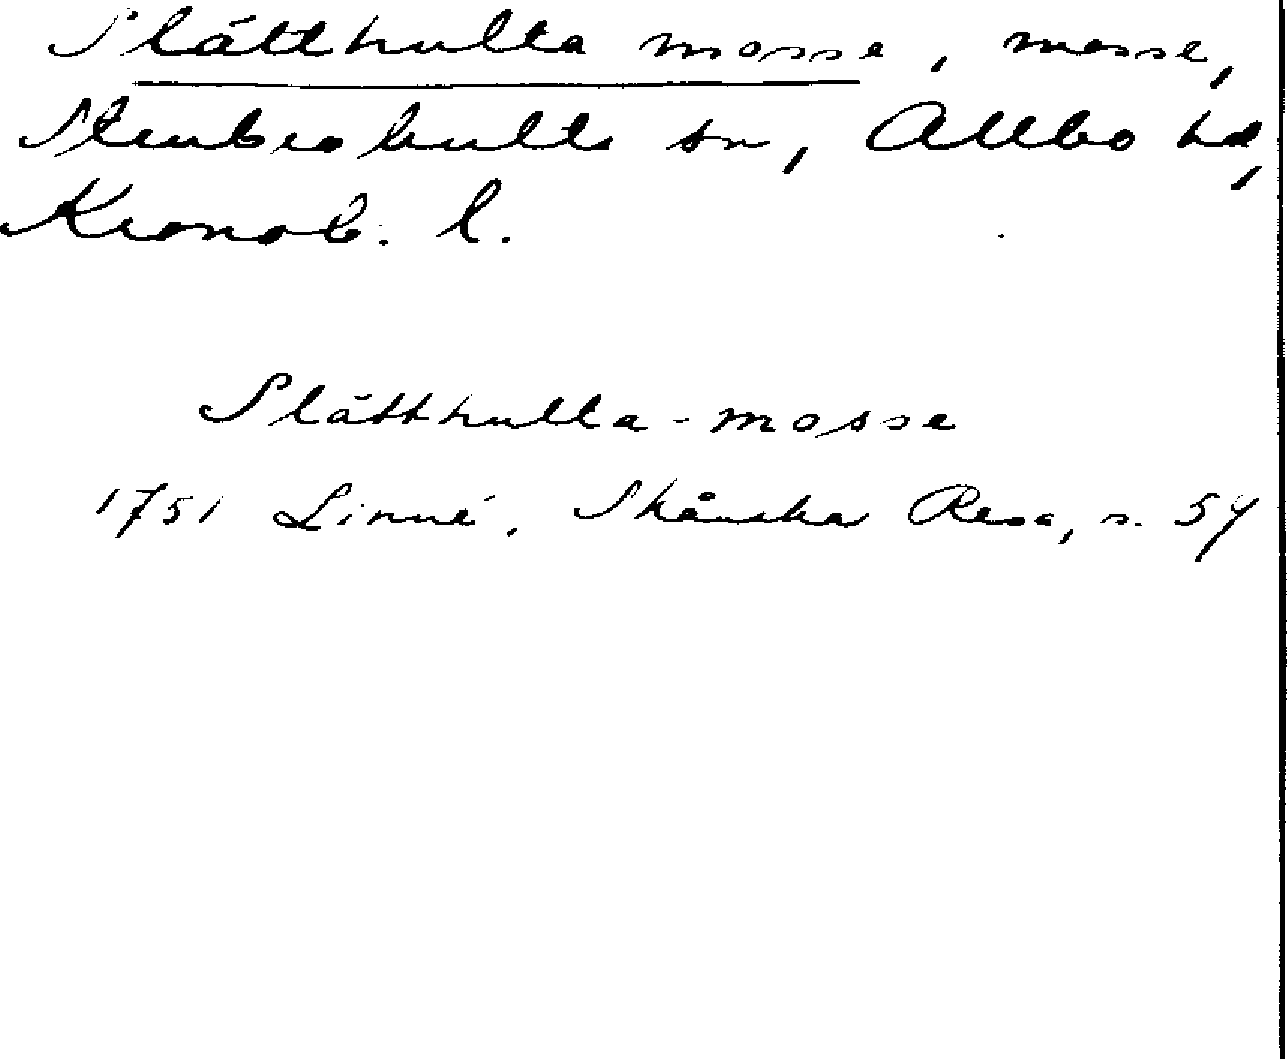 Slätthulta mosse, mosse,
Stenbrohults sn, Allbo hd,
Kronob. l.
Slätthulta-mosse
1751 Linné, Skånska Resa, s. 54